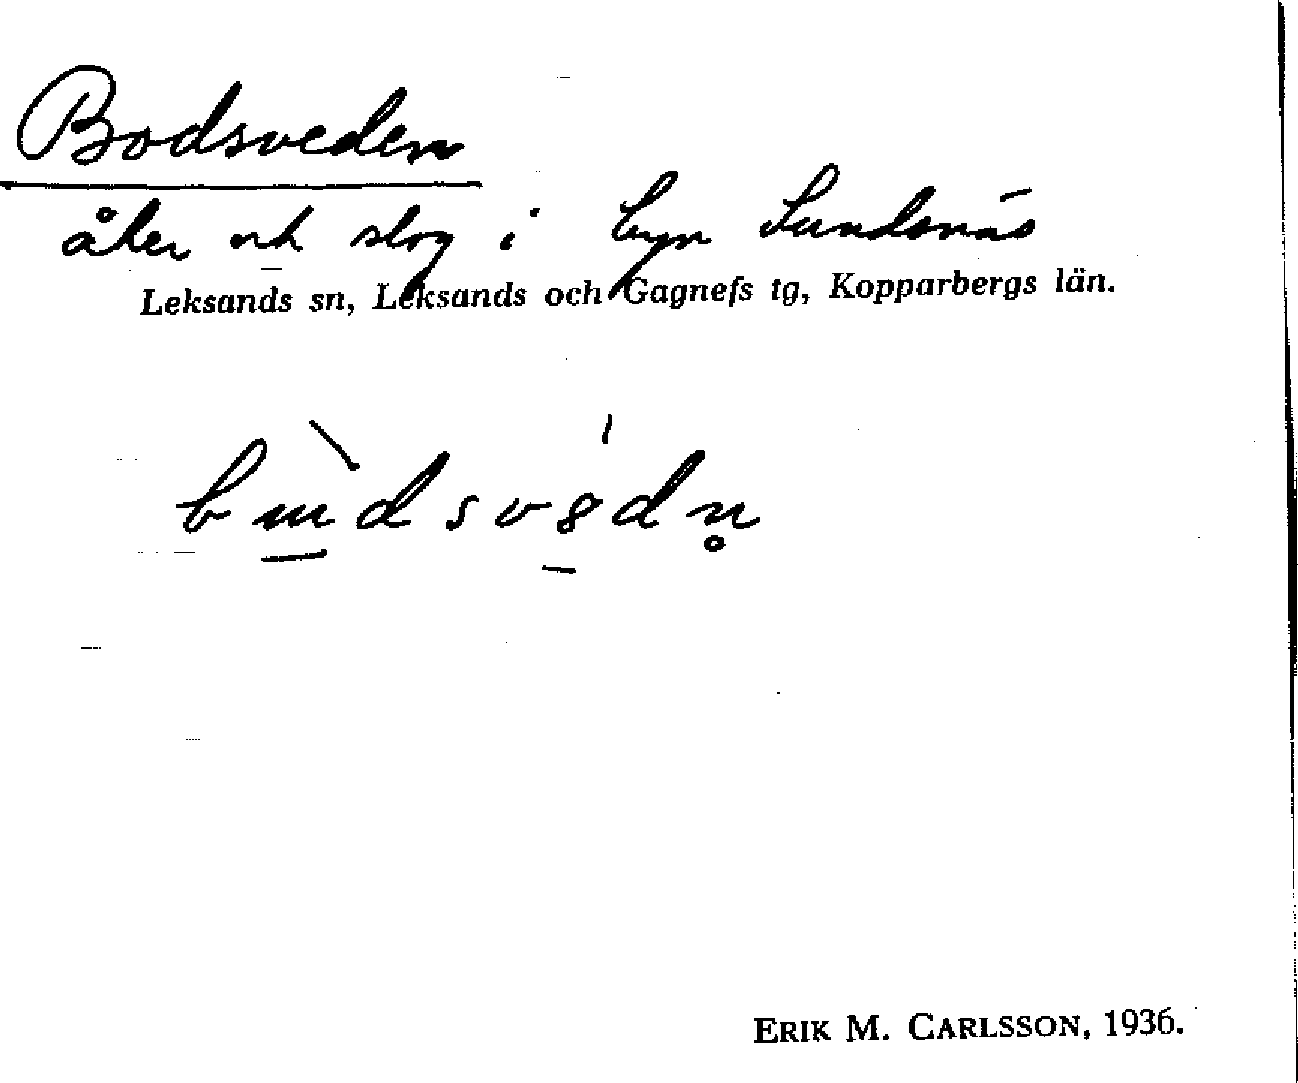 Bodsveden
åker och slog i byn Sundsnäs
Leksands sn, Leksands och Gagnefs tg, Kopparbergs län.
ERIK M. CARLSSON, 1936.